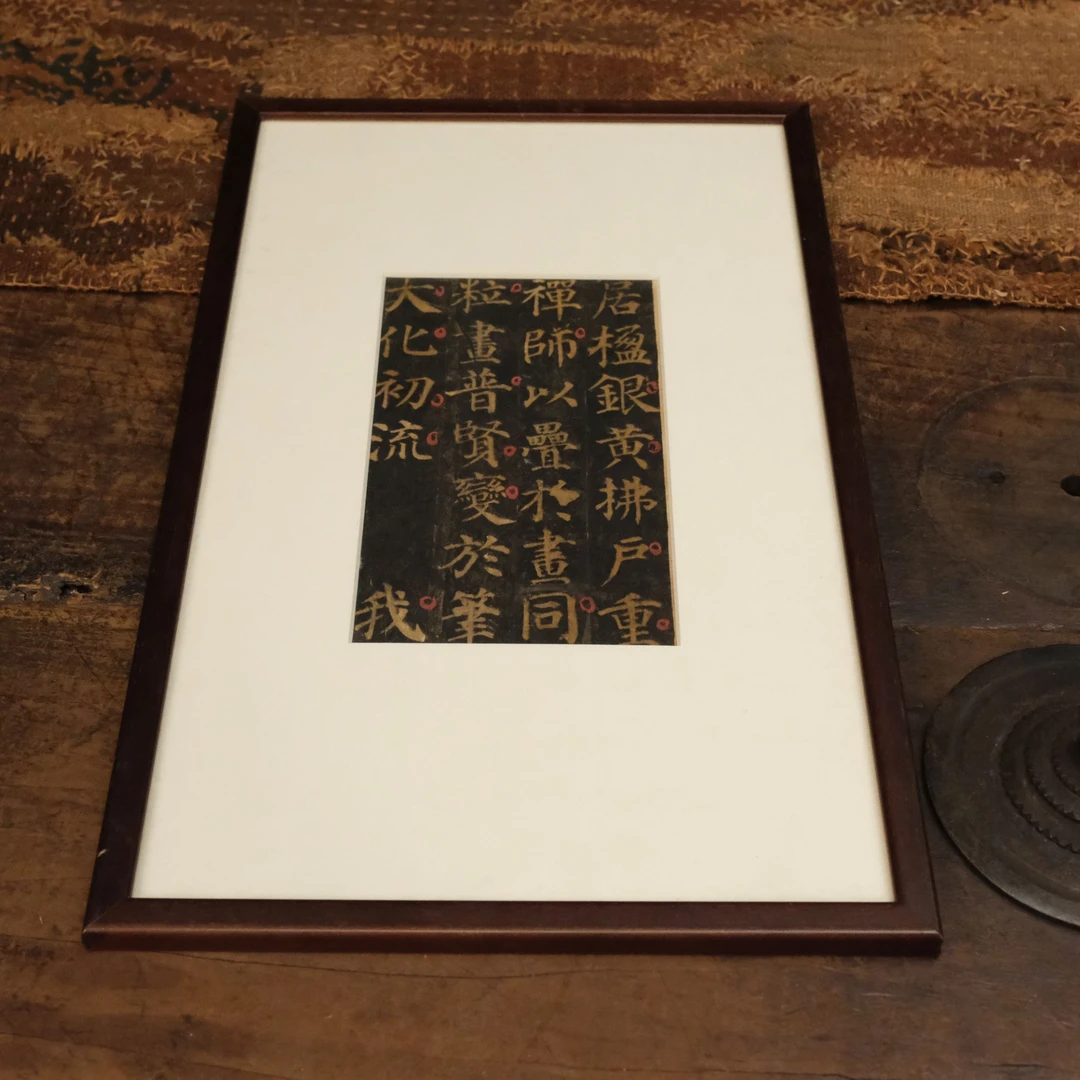 居楹銀黄拂戶重
禪師以疊於畫同
粒畫普賢變於筆
大化初流 我